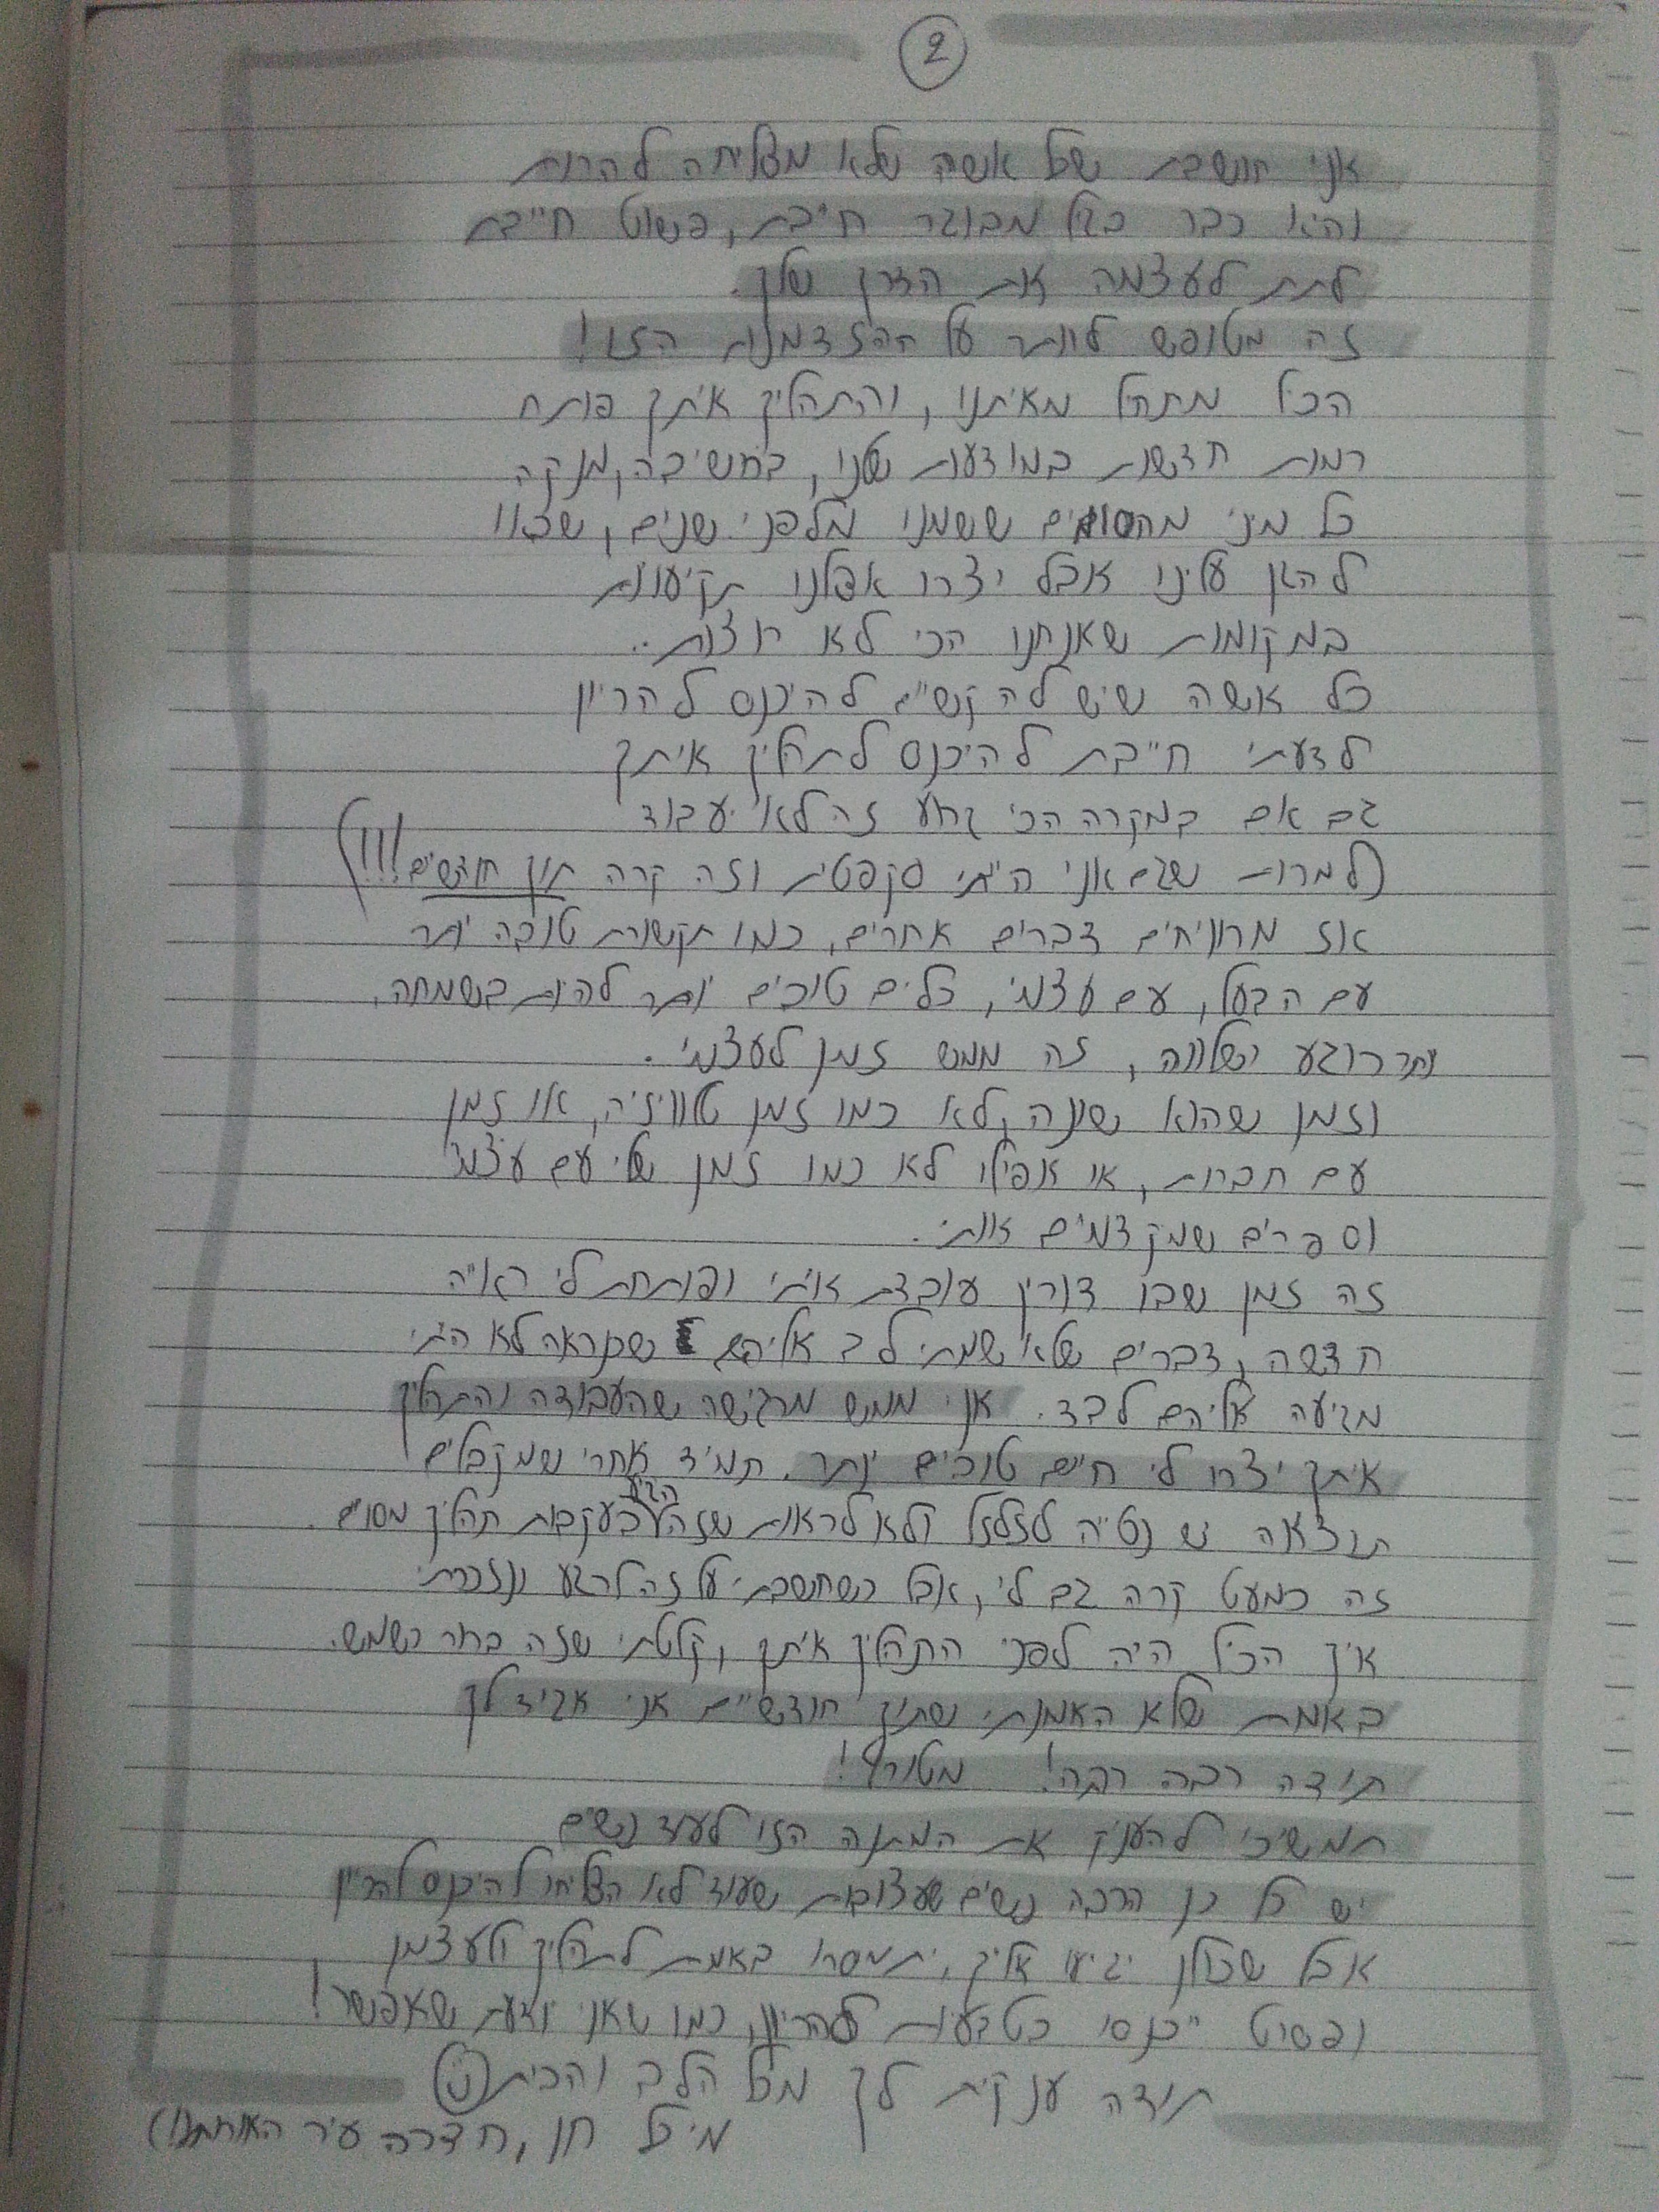 2
אני חושבת שכל אשה שלא מצליחה להרות
והיא כבר בגיל מבוגר חייבת, פשוט חייבת
לתת לעצמה את הדרך שלך.
זה מטופש לוותר על ההזדמנות הזו!
הכל מתחיל מאיתנו, והתהליך איתך פותח
רמות חדשות במודעות שלנו, בחשיבה, מנקה
כל מיני מחסומים ששמנו מלפני שנים, שבאו
להגן עלינו אבל יצרו אצלנו תקיעות
במקומות שאנחנו הכי לא רוצות..
כל אשה שיש לה קושי להיכנס להריון
לדעתי חייבת להיכנס לתהליך איתך
גם אם במקרה הכי גרוע זה לא יעבוד
(למרות שגם אני הייתי סקפטית וזה קרה תוך חודשיים!!!)
אז מרוויחים דברים אחרים, כמו תקשורת טובה יותר
עם הבעל, עם עצמי, כלים טובים יותר להיות בשמחה,
יותר רוגע ושלווה, זה ממש זמן לעצמי.
וזמן שהוא שונה, לא כמו זמן טלוויזיה, או זמן
עם חברות, או אפילו לא כמו זמן שלי עם עצמי
וספרים שמקדמים אותי.
זה זמן שבו דורין עובדת איתי ופותחת לי ראייה
חדשה, דברים שלא שמתי לב אליהם שכנראה לא הייתי
מגיעה אליהם לבד. אני ממש מרגישה שהעבודה והתהליך
איתך יצרו לי חיים טובים יותר. תמיד אחרי שמקבלים
תוצאה יש נטייה לזלזל ולא לראות שזה הגיע בעקבות תהליך מסוים.
זה כמעט קרה גם לי, אבל כשחשבתי על זה לרגע ונזכרתי
איך הכל היה לפני התהליך איתך, קלטתי שזה ברור כשמש.
באמת שלא האמנתי שתוך חודשיים אני אגיד לך
תודה רבה רבה! מטורף!
תמשיכי להעניק את המתנה הזו לעוד נשים
יש כל כך הרבה נשים שעצובות שעוד לא הצליחו להיכנס להריון
אבל שכולן יגיעו אליך, יתמסרו באמת לתהליך ולעצמן
ופשוט ייכנסו בטבעיות להריון, כמו שאני יודעת שאפשר!
תודה ענקית לך מכל הלב והבית
מיטל חן, חדרה עיר האורות(: